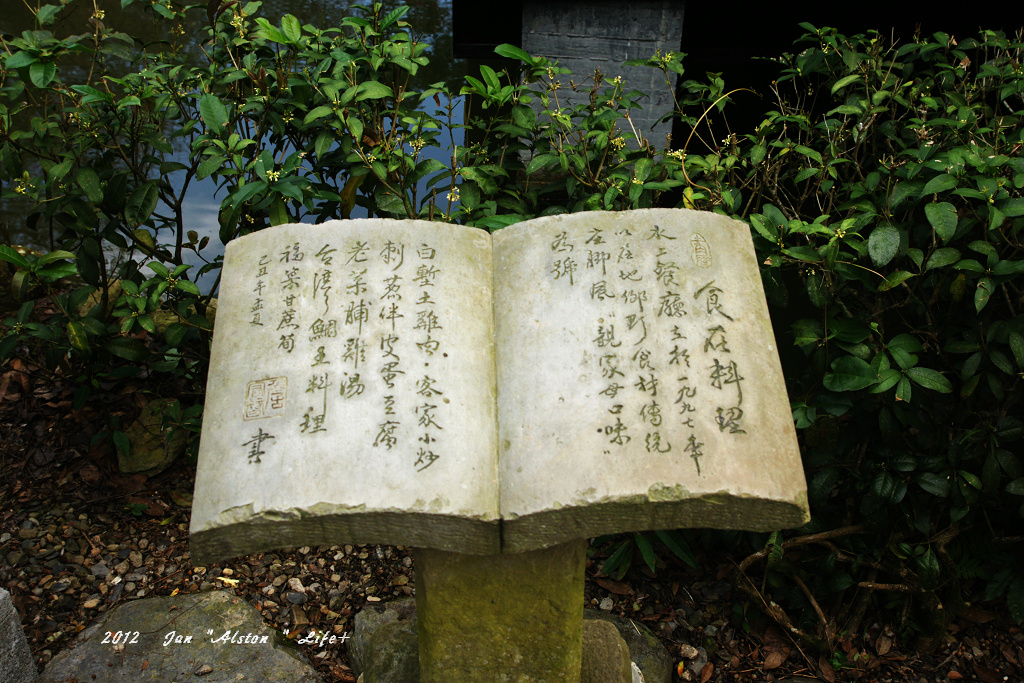 食在料理
水上餐廳立於一九九七年
以在地鄉野食材傳統
庄脚風"親家母口味"
為號
白斬土雞肉·客家小炒
刺蔥伴皮蛋豆腐
老菜脯雞湯
合潽鯛魚料理
福菜甘蔗筍
己丑年
書
2012 Jan "Alston " Life+